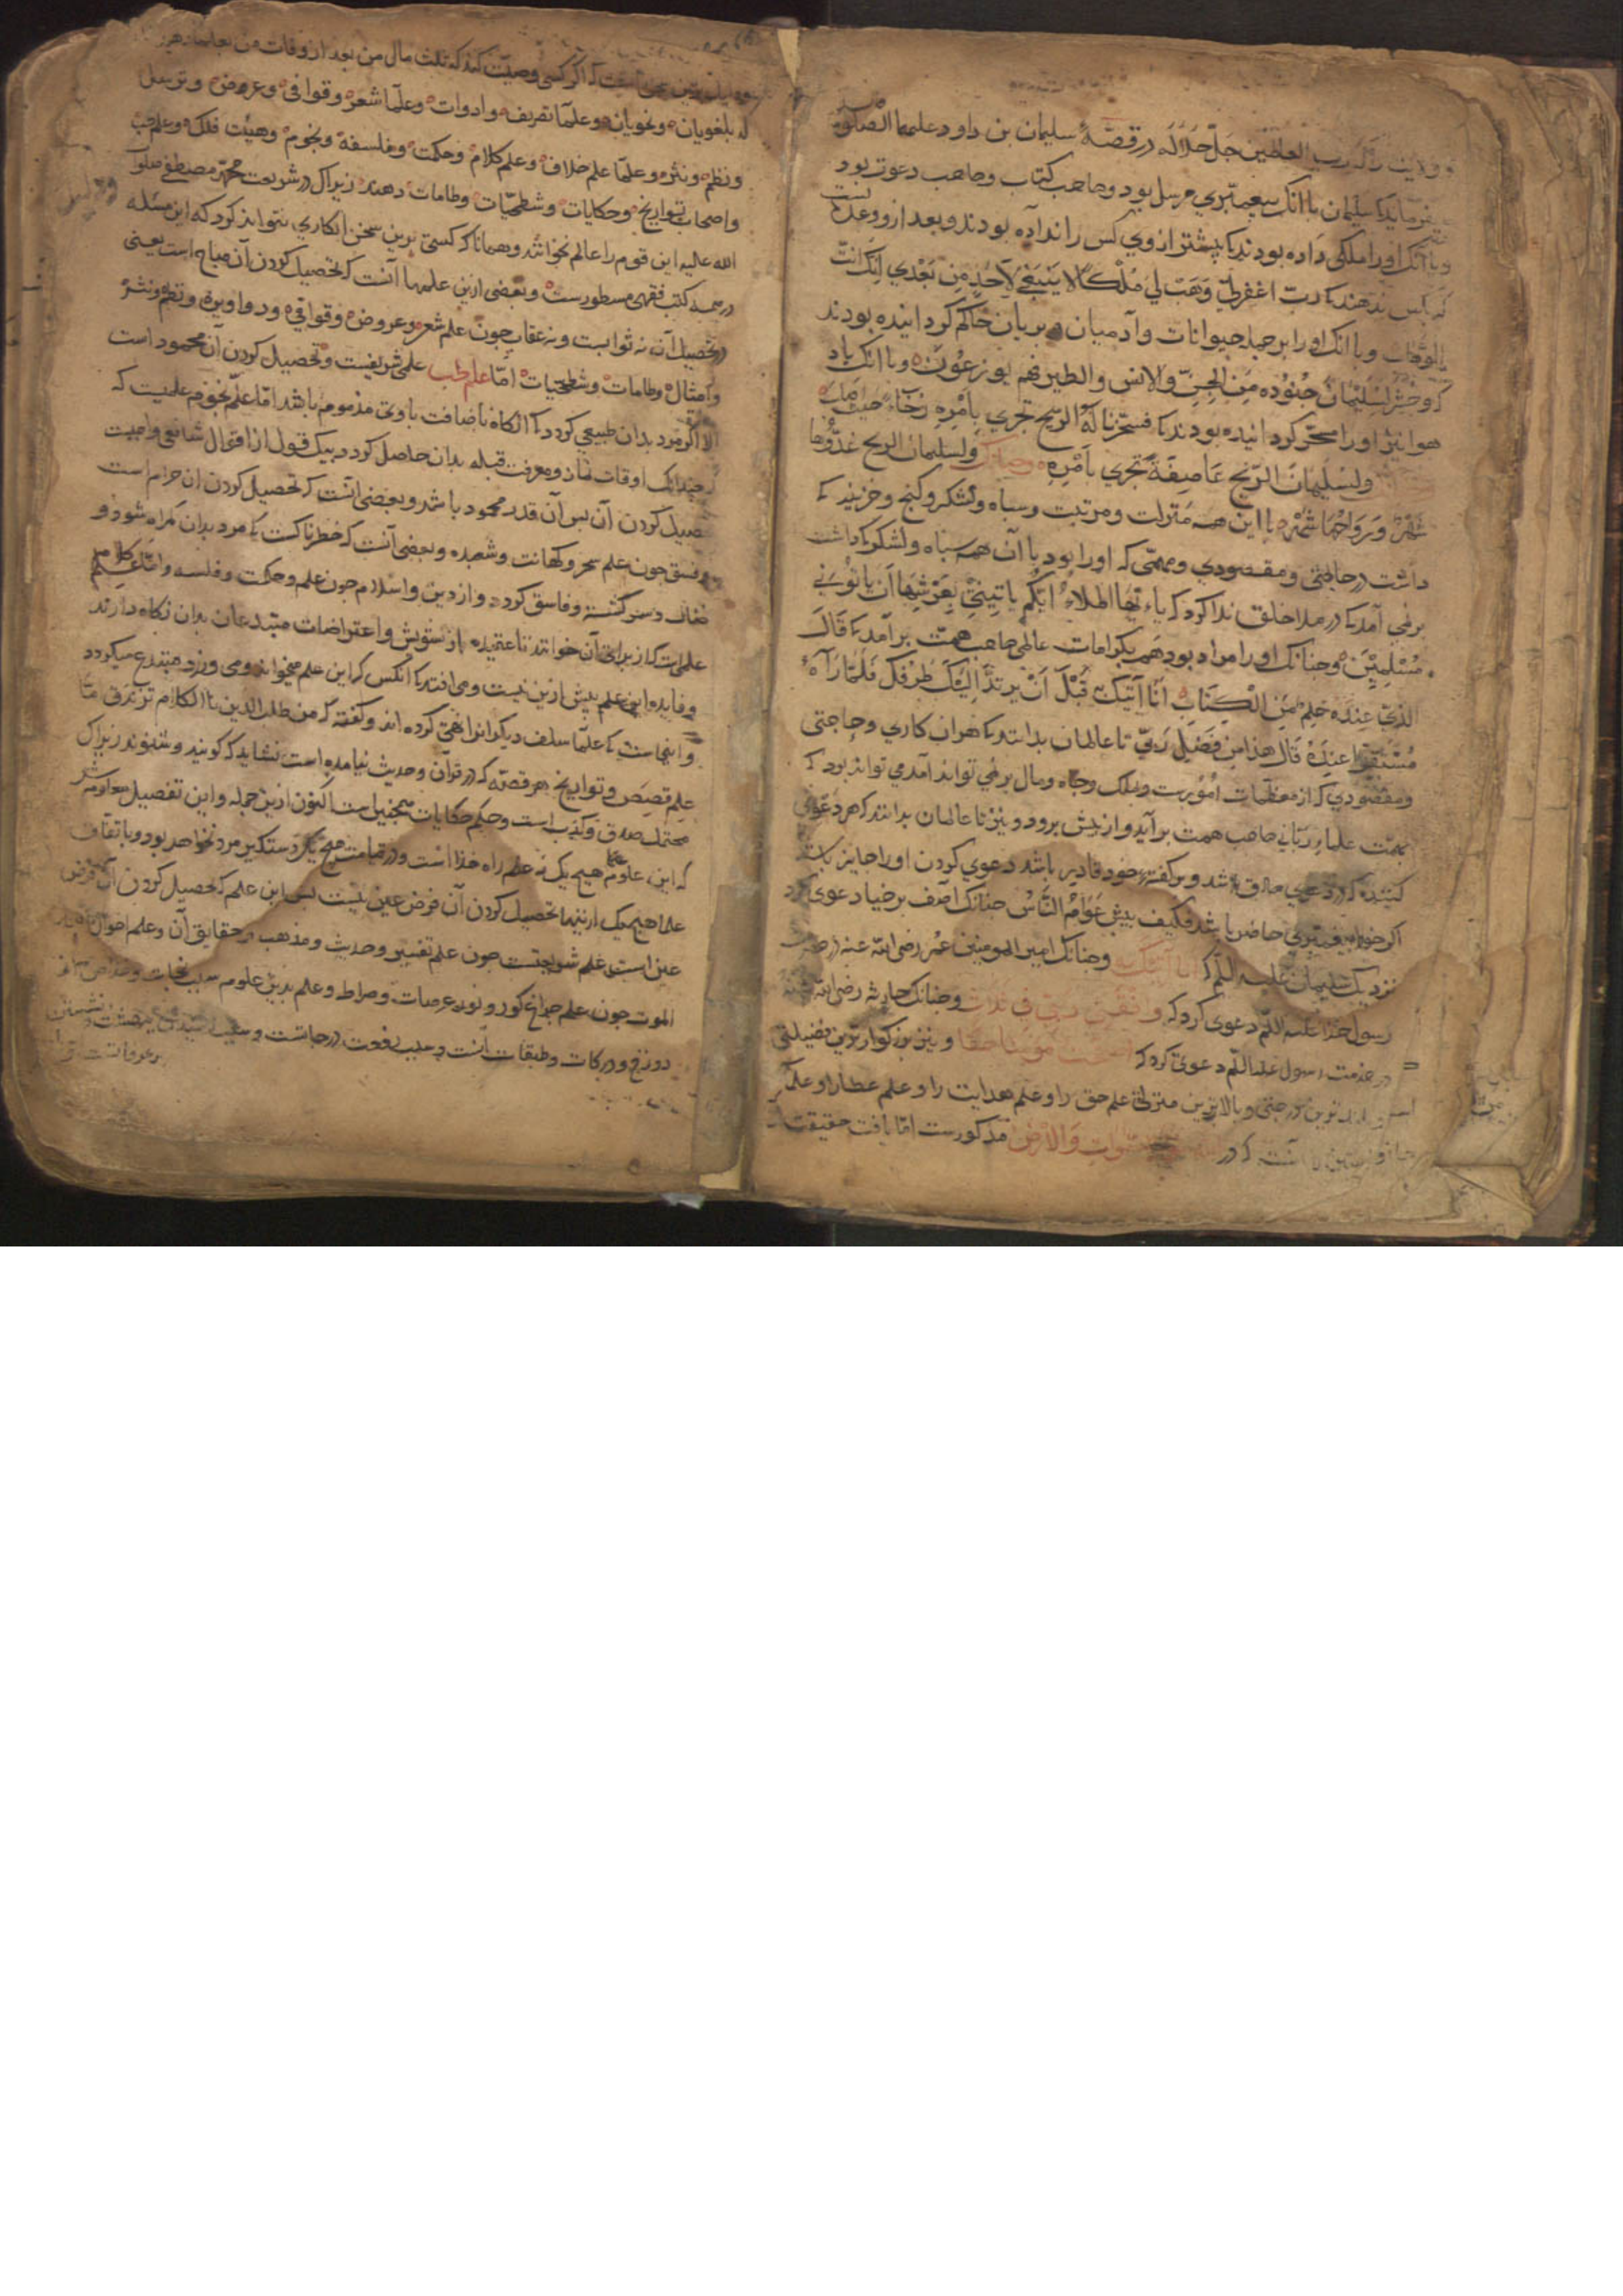 و ولایت رب العالمین جل جلاله در قصهٔ سلیمان بن داود علیهما الصلوة
میفرماید که سلیمان باانک پیغمبری مرسل بود و صاحب کتاب و صاحب دعوت بود
و باانک او را ملکی داده بودند که پیشتر از وی کس را نداده بودند و بعد ازو وعده
که بکس ندهند که رب اغفرلی وهب لی ملکا لا ینبغی لاحد من بعدی انک انت
الوهاب و باانک او را بر جمله حیوانات و آدمیان و پریان حاکم گردانیده بودند
که وحشر لسلیمان جنوده من الجن والانس والطیر فهم یوزعون و باانک باد
هوا نیز او را مسخر گردانیده بودند که فسخرنا له الریح تجری بامره رخاء حیث اصاب
ولسلیمان الریح عاصفة تجری بامره ولسلیمان الریح غدوها
شهر ورواحها شهر با این همه منزلت و مرتبت و سپاه و لشکر و گنج و خزینه که
داشت در حاجتی و مقصودی و مهمی که او را بود با آن همه سپاه و لشکر که داشت
برنمی آمد که در ملا خلق ندا کرد که یا ایها الملاء ایکم یاتینی بعرشها ان یاتونی
مسلمین و چنانک او را مراد بود هم بکرامات عالمی صاحب همت برآمد که قال
الذی عنده علم من الکتاب انا آتیک به قبل ان یرتد الیک طرفک فلما رآه
مستقرا عنده قال هذا من فضل ربی تا عالمیان بدانند که هر آن کاری و حاجتی
و مقصودی که از معظمات امورست و بملک و جاه و مال برنمی تواند آمد می تواند بود که
بهمت علماء ربانی صاحب همت برآید و از پیش برود و نیز تا عالمیان بدانند که هر دعوی
کننده که در دعوی صادق باشد و بر گفتهٔ خود قادر باشد دعوی کردن او را جایز باشد
اگر خود پیغمبری حاضر باشد فکیف پیش عوام الناس چنانک آصف برخیا دعوی کرد
نزدیک سلیمان علیه السلم که انا آتیک به و چنانک امیر المومنین عمر رضی الله عنه در حضرت
رسول خدا علیه السلم دعوی کرد که وافقنی ربی فی ثلاث و چنانک حارثه رضی الله عنه
در خدمت رسول علیه السلم دعوی کرد که اصبحت مومنا حقا و نیز بزرگوارترین فضیلتی
و بلندترین درجتی و بالاترین منزلی علم حق را و علم هدایت را و علم عطا را و علما
آنست که در السموات والارض مذکورست اما یافت حقیقت
است که اگر کسی وصیت کند که ثلث مال من بعد از وفات من بعلما دهند
نه بلغویان و نحویان و علماء تصریف و ادوات و علماء شعر و قوافی و عروض و ترسل
و نظم و نثر و علماء علم خلاف و علم کلام و حکمت و فلسفه و نجوم و هیئت فلک و علم طب
و اصحاب تواریخ و حکایات و شطحیات و طامات دهند زیراک در شریعت محمد مصطفی صلوات
الله علیه این قوم را عالم نخوانند و همانا که کسی برین سخن انکاری نتواند کرد که این مسئله
در همه کتب فقهی مسطورست و بعضی ازین علمها آنست که تحصیل کردن آن مباح است یعنی
در تحصیل آن نه ثوابست و نه عقاب چون علم شعر و عروض و قوافی و دواوین و نظم و نثر
و امثال و طامات و شطحیات اما علم طب علمی شریفست و تحصیل کردن آن محمود است
الا اگر مرد بدان طبیعی گردد که آنگاه باضافت باوی مذموم باشد اما علم نجوم علمیست که
چندانک اوقات نماز و معرفت قبله بدان حاصل گردد بیک قول از اقوال شافعی واجبست
تحصیل کردن آن پس آن قدر محمود باشد و بعضی آنست که تحصیل کردن آن حرام است
و فسق چون علم سحر و کهانت و شعبده و بعضی آنست که خطرناکست که مرد بدان گمراه شود و
ضال و سرگشته و فاسق گردد و از دین و اسلام چون علم و حکمت و فلسفه و اما علم کلام
علمیست که از برای آن خوانند تا عقیده از تشویش و اعتراضات مبتدعان بدان نگاه دارند
و فایده این علم بیش ازین نیست و می افتد که آنکس که این علم میخواند و می ورزد مبتدع میگردد
و اینجاست که علماء سلف دیگرانرا نهی کرده اند و گفته که من طلب الدین بالکلام تزندق اما
علم قصص و تواریخ هر قصه که در قرآن و حدیث نیامده است نشاید که گویند و شنوند زیراک
محتمل صدق و کذب است و حکم حکایات همچنین است اکنون ازین جمله و این تفصیل معلوم شد
که این علوم هیچ یک نه علم راه خداست و در قیامت هیچ یک دستگیر مرد نخواهد بود و باتفاق
علما هیچ یک ازینها تحصیل کردن آن فرض عین نیست پس این علم که تحصیل کردن آن فرض
عین است علم شریعتست چون علم تفسیر و حدیث و مذهب و حقایق آن و علم احوال
الموت چون علم چراغ گور و نور عرصات و صراط و علم بدین علوم سبب نجات
دوزخ و درکات و طبقات آنست و سبب رفعت درجاتست و سبب